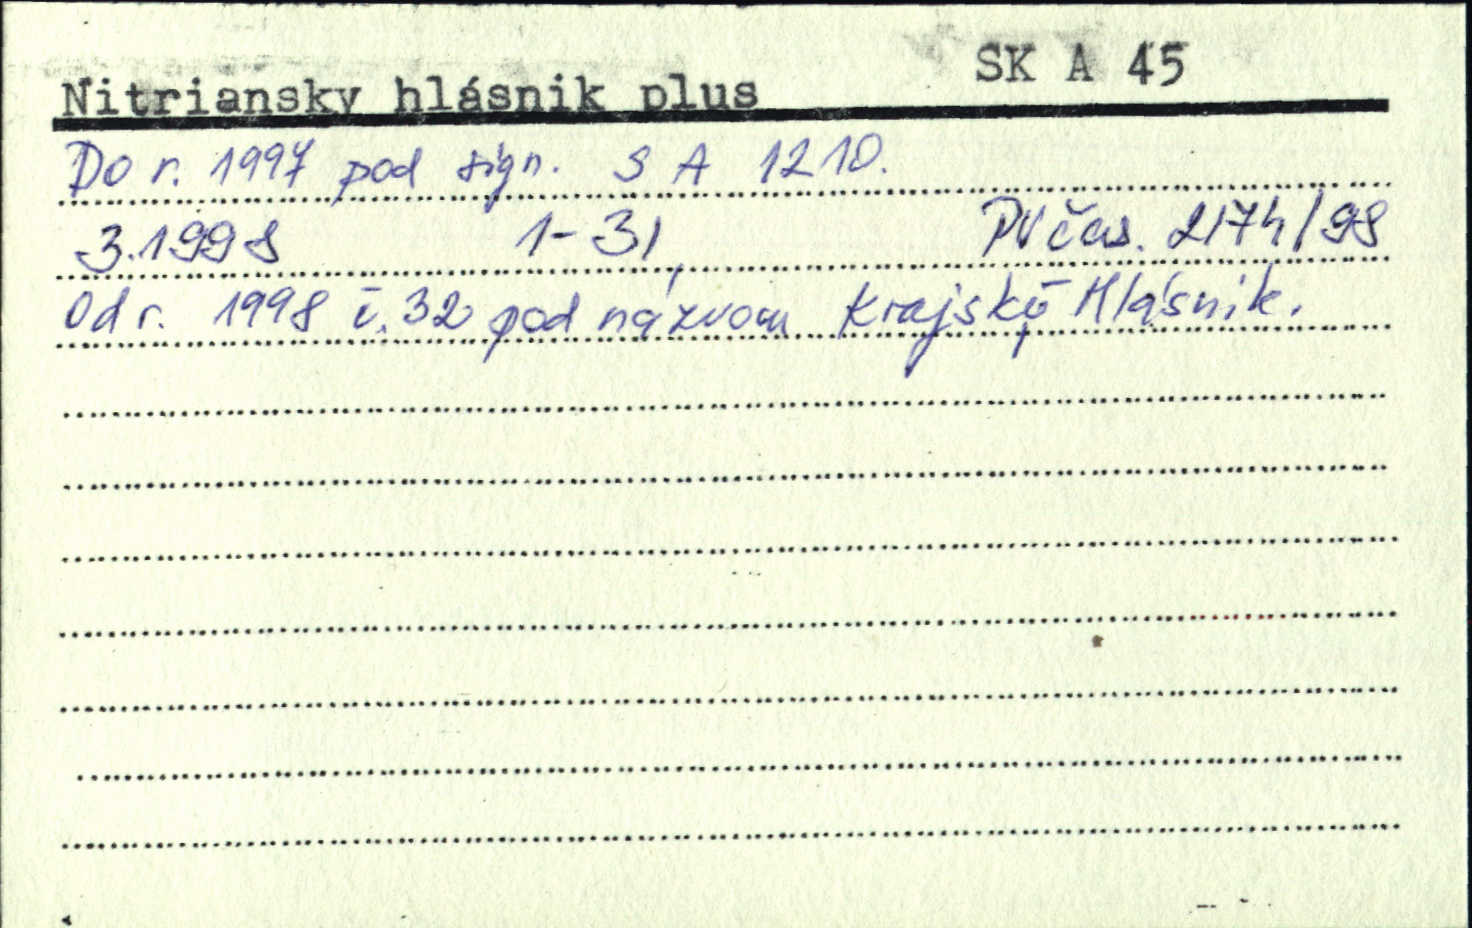 Nitriansky hlásnik plus SK A 45
Do r. 1997 pod sign. S A 1210.
3.1998 1-31, PV čas. 2174/98
Od r. 1998 č. 32 pod názvom Krajský Hlásnik.